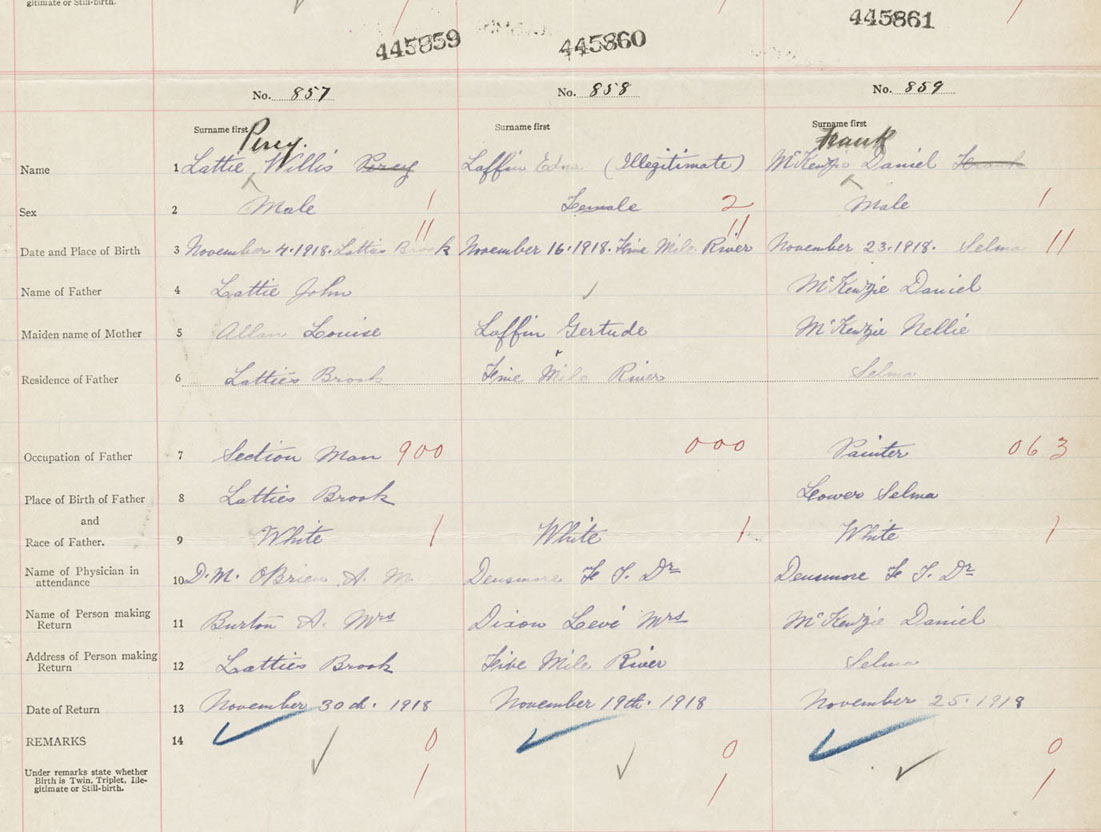 gitimate or Still-birth.
445859 445860 445861
No. 857 No. 858 No. 859
Surname first Surname first Surname first
Percy. Frank
Name 1 Lattie Willis Percy Laffin Edna (Illegitimate) McKenzie Daniel Frank
Sex 2 Male 1 Female 2 Male 1
11 11
Date and Place of Birth 3 November 4.1918. Latties Brook November 16.1918. Five Mile River November 23.1918. Selma 11
Name of Father 4 Lattie John McKenzie Daniel
Maiden name of Mother 5 Allan Louise Laffin Gertude McKenzie Nellie
Residence of Father 6 Latties Brook Five Mile River Selma
Occupation of Father 7 Section Man 900 000 Painter 063
Place of Birth of Father 8 Latties Brook Lower Selma
and
Race of Father. 9 White 1 White 1 White 1
Name of Physician in
attendance 10 D.M. O'Brien A. M. Densmore F T. Dr Densmore F T. Dr
Name of Person making
Return 11 Burton A. Mrs Dixon Levi Mrs McKenzie Daniel
Address of Person making
Return 12 Latties Brook Five Mile River Selma
Date of Return 13 November 30th. 1918 November 19th. 1918 November 25.1918
REMARKS 14 0 0 0
Under remarks state whether
Birth is Twin, Triplet, Ille-
gitimate or Still-birth. 1 1 1